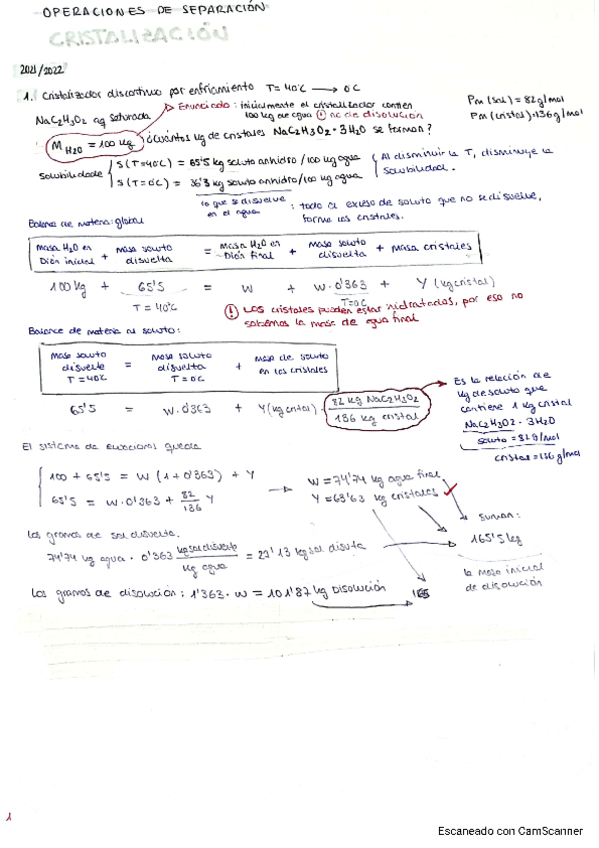 OPERACIONES DE SEPARACIÓN
CRISTALIZACIÓN
2021/2022
1. Cristalizador discontinuo por enfriamiento T = 40°C → 0°C
NaC2H3O2 aq saturada
Enunciado: inicialmente el cristalizador contien
100 kg de agua ! no de disolución
Pm (sal) = 82 g/mol
Pm (cristal) = 136 g/mol
M H2O = 100 kg ¿cuántos kg de cristales NaC2H3O2 · 3H2O se forman?
Solubilidade
S (T=40°C) = 65'5 kg soluto anhidro / 100 kg agua
S (T=0°C) = 36'3 kg soluto anhidro / 100 kg agua
Al disminuir la T, disminuye la
solubilidad.
lo que se disuelve
en el agua
: todo el exceso de soluto que no se disuelve,
forma los cristales.
Balance de materia: global
masa H2O en Dion inicial + masa soluto disuelta = masa H2O en Dion final + masa soluto disuelta + masa cristales
100 kg + 65'5 = W + W·0'363 + Y (kg cristal)
T = 40°C
T = 0°C
! Los cristales pueden estar hidratados, por eso no
sabemos la masa de agua final
Balance de materia al soluto:
masa soluto disuelto T = 40°C = masa soluto disuelta T = 0°C + masa de soluto en los cristales
65'5 = W·0'363 + Y (kg cristal) · 82 kg NaC2H3O2 / 136 kg cristal
Es la relación de
kg de soluto que
contiene 1 kg cristal
NaC2H3O2 · 3H2O
soluto = 82 g/mol
cristal = 136 g/mol
El sistema de ecuaciones queda
100 + 65'5 = W (1 + 0'363) + Y
65'5 = W·0'363 + 82/136 Y
W = 74'74 kg agua final
Y = 63'63 kg cristales ✓
Suman:
165'5 kg
la masa inicial
de disolución
Los gramos de sal disuelta.
74'74 kg agua · 0'363 kg sal disuelto / kg agua = 27'13 kg sal disuta
Los gramos de disolución: 1'363 · W = 101'87 kg Disolución
1
Escaneado con CamScanner